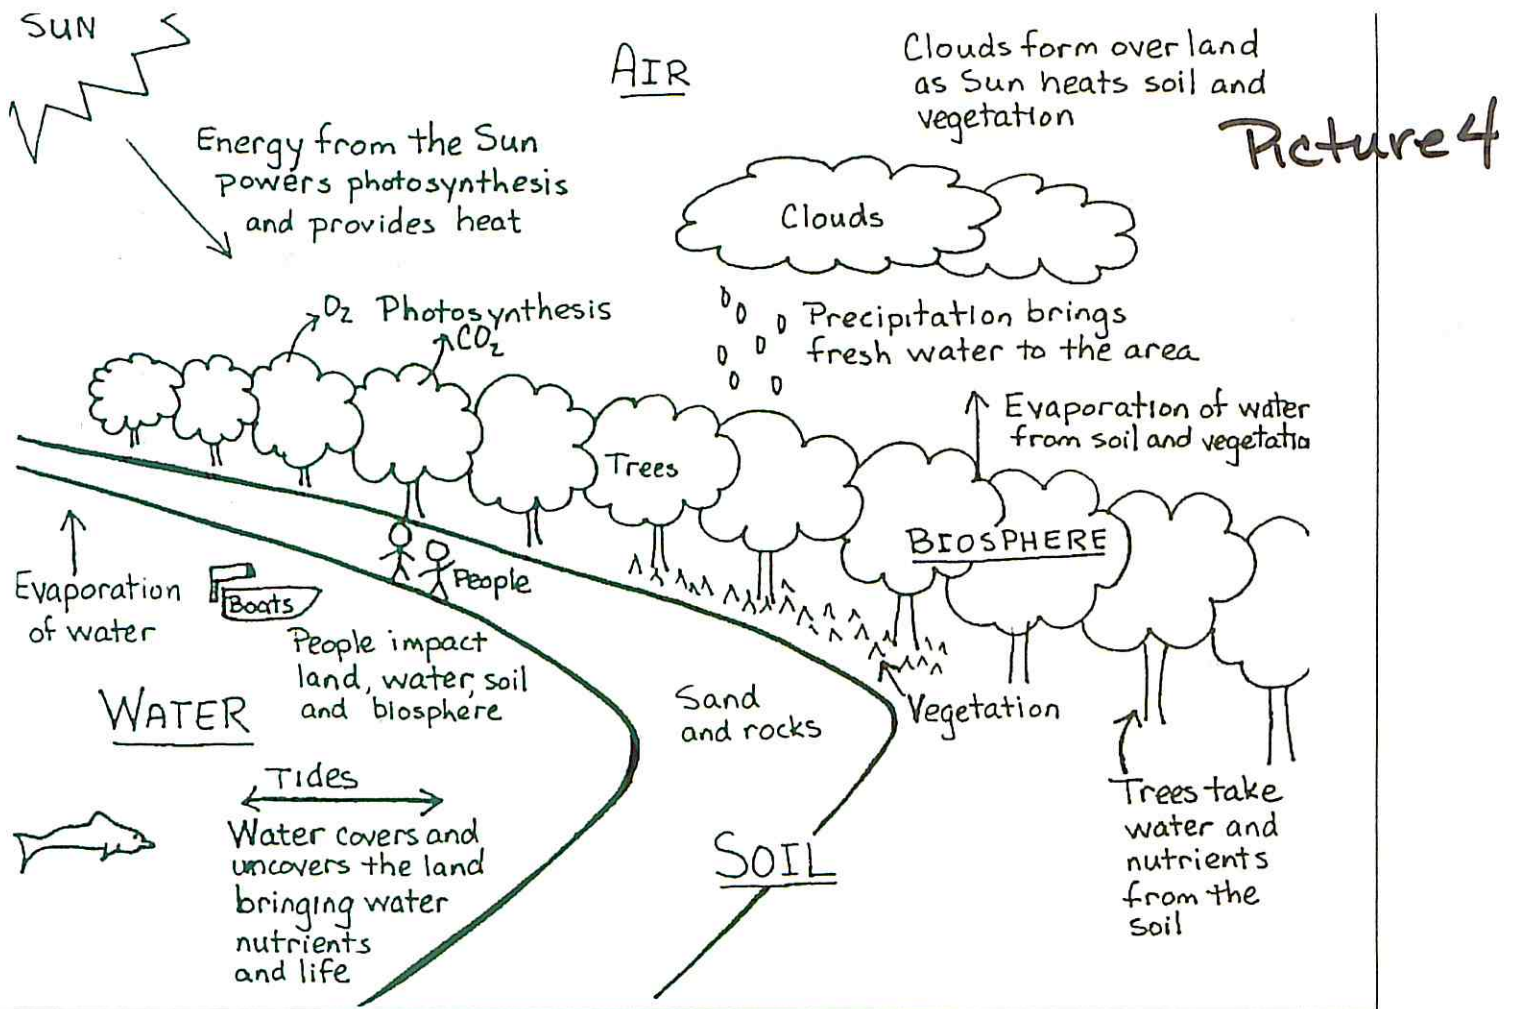 SUN
AIR
Clouds form over land
as Sun heats soil and
vegetation
Picture 4
Energy from the Sun
powers photosynthesis
and provides heat
Clouds
O₂ Photosynthesis
CO₂
Precipitation brings
fresh water to the area
Evaporation of water
from soil and vegetatio
Trees
BIOSPHERE
People
Evaporation
of water
Boats
People impact
land, water, soil
and biosphere
WATER
Sand
and rocks
Vegetation
Tides
Water covers and
uncovers the land
bringing water
nutrients
and life
SOIL
Trees take
water and
nutrients
from the
soil